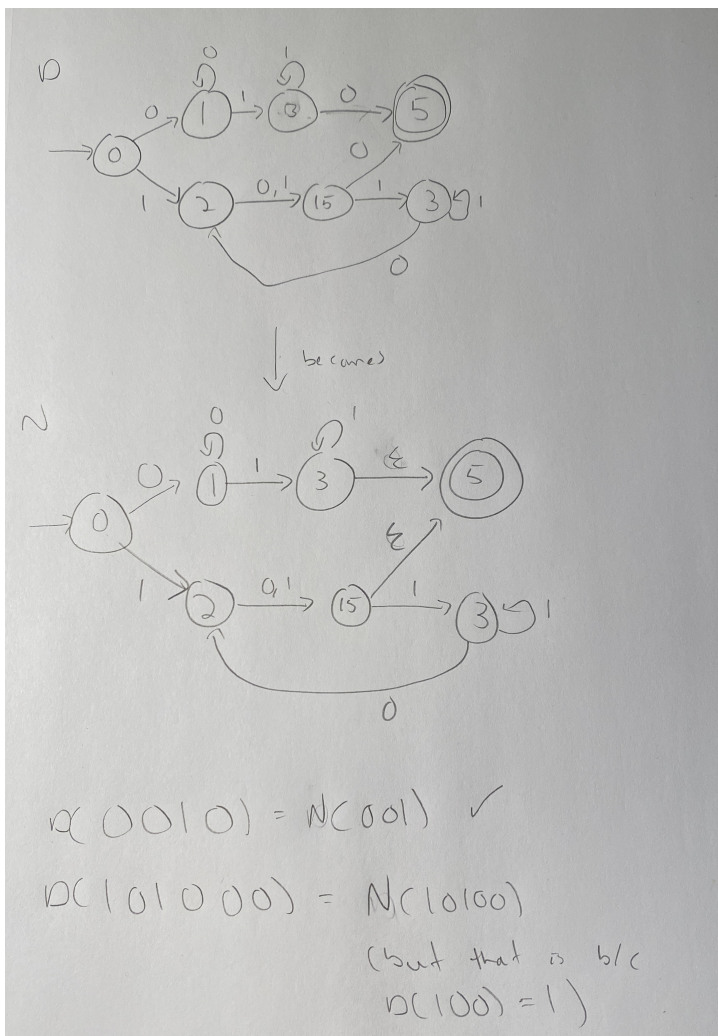 D
0
1
0 1 1 3 0 5
0
0
1 2 0,1 15 1 3 1
0
becomes
N
0
1
0 1 1 3 ε 5
0
ε
1 2 0,1 15 1 3 1
0
D(0010) = N(001) ✓
D(101000) = N(10100)
(but that is b/c
D(100) = 1)